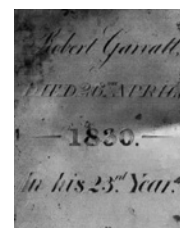 Robert Garratt.
DIED 26TH APRIL
1830.
In his 23rd Year.